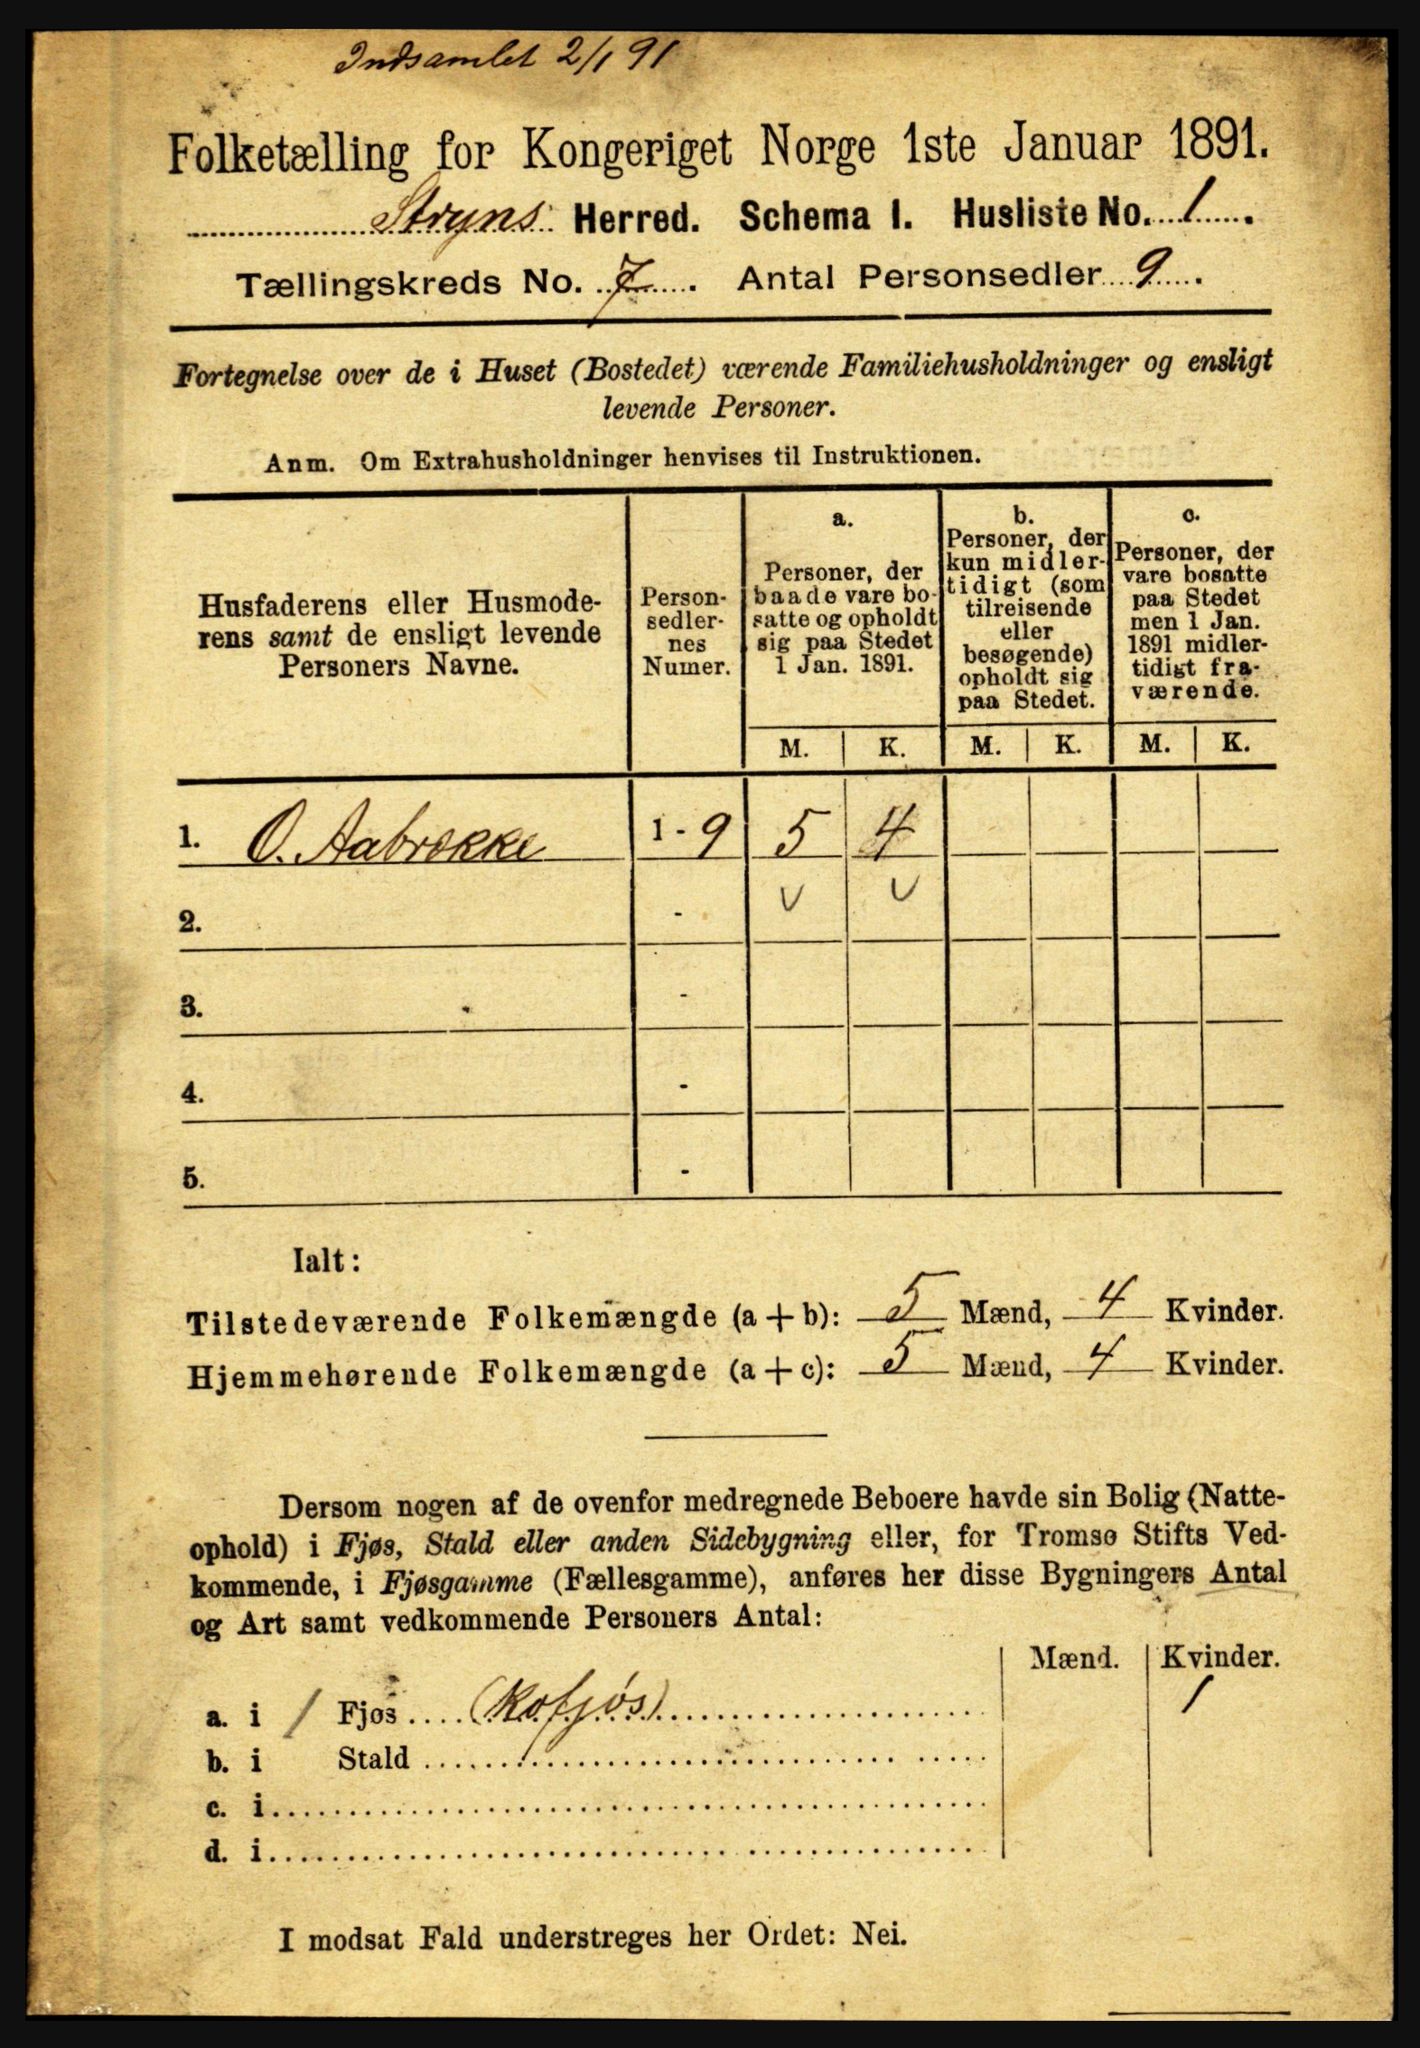 Indsamlet 2/1 91
Folketælling for Kongeriget Norge 1ste Januar 1891.
Stryns Herred. Schema I. Husliste No. 1.
Tællingskreds No. 7. Antal Personsedler 9.
Fortegnelse over de i Huset (Bostedet) værende Familiehusholdninger og ensligt
levende Personer.
Anm. Om Extrahusholdninger henvises til Instruktionen.
Husfaderens eller Husmode-
rens samt de ensligt levende
Personers Navne.
Person-
sedler-
nes
Numer.
a.
Personer, der
baade vare bo-
satte og opholdt
sig paa Stedet
1 Jan. 1891.
b.
Personer, der
kun midler-
tidigt (som
tilreisende
eller
besøgende)
opholdt sig
paa Stedet.
c.
Personer, der
vare bosatte
paa Stedet
men 1 Jan.
1891 midler-
tidigt fra-
værende.
M. K. M. K. M. K.
1. O. Aabrekke 1 - 9 5 4
2. -
3. -
4. -
5. -
Ialt:
Tilstedeværende Folkemængde (a + b): 5 Mænd, 4 Kvinder.
Hjemmehørende Folkemængde (a + c): 5 Mænd, 4 Kvinder.
Dersom nogen af de ovenfor medregnede Beboere havde sin Bolig (Natte-
ophold) i Fjøs, Stald eller anden Sidebygning eller, for Tromsø Stifts Ved-
kommende, i Fjøsgamme (Fællesgamme), anføres her disse Bygningers Antal
og Art samt vedkommende Personers Antal:
Mænd. Kvinder.
a. i 1 Fjøs .... (Kofjøs) .... 1
b. i Stald ....
c. i ....
d. i ....
I modsat Fald understreges her Ordet: Nei.